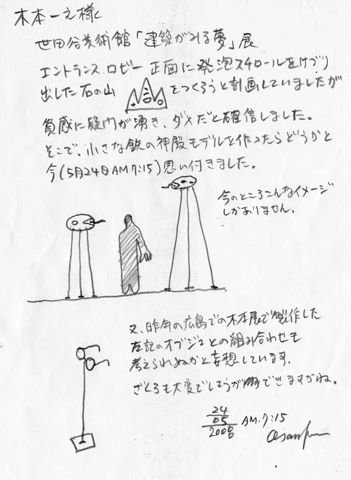 木本一之様
世田谷美術館「建築がみる夢」展
エントランスロビー正面に発泡スチロールをけづり
出した石の山 をつくろうと計画していましたが
質感に疑問が湧き、ダメだと確信しました。
そこで、小さな鉄の神殿モデルを作ったらどうかと
今(5月24日AM7:15)思い付きました。
今のところこんなイメージ
しかありません。
又、昨年の広島での木本展で製作した
左記のオブジェとの組み合わせも
考えられぬかと妄想しています。
ざくろも大変でしょうが できますかね。
24
05
2008
AM.7:15